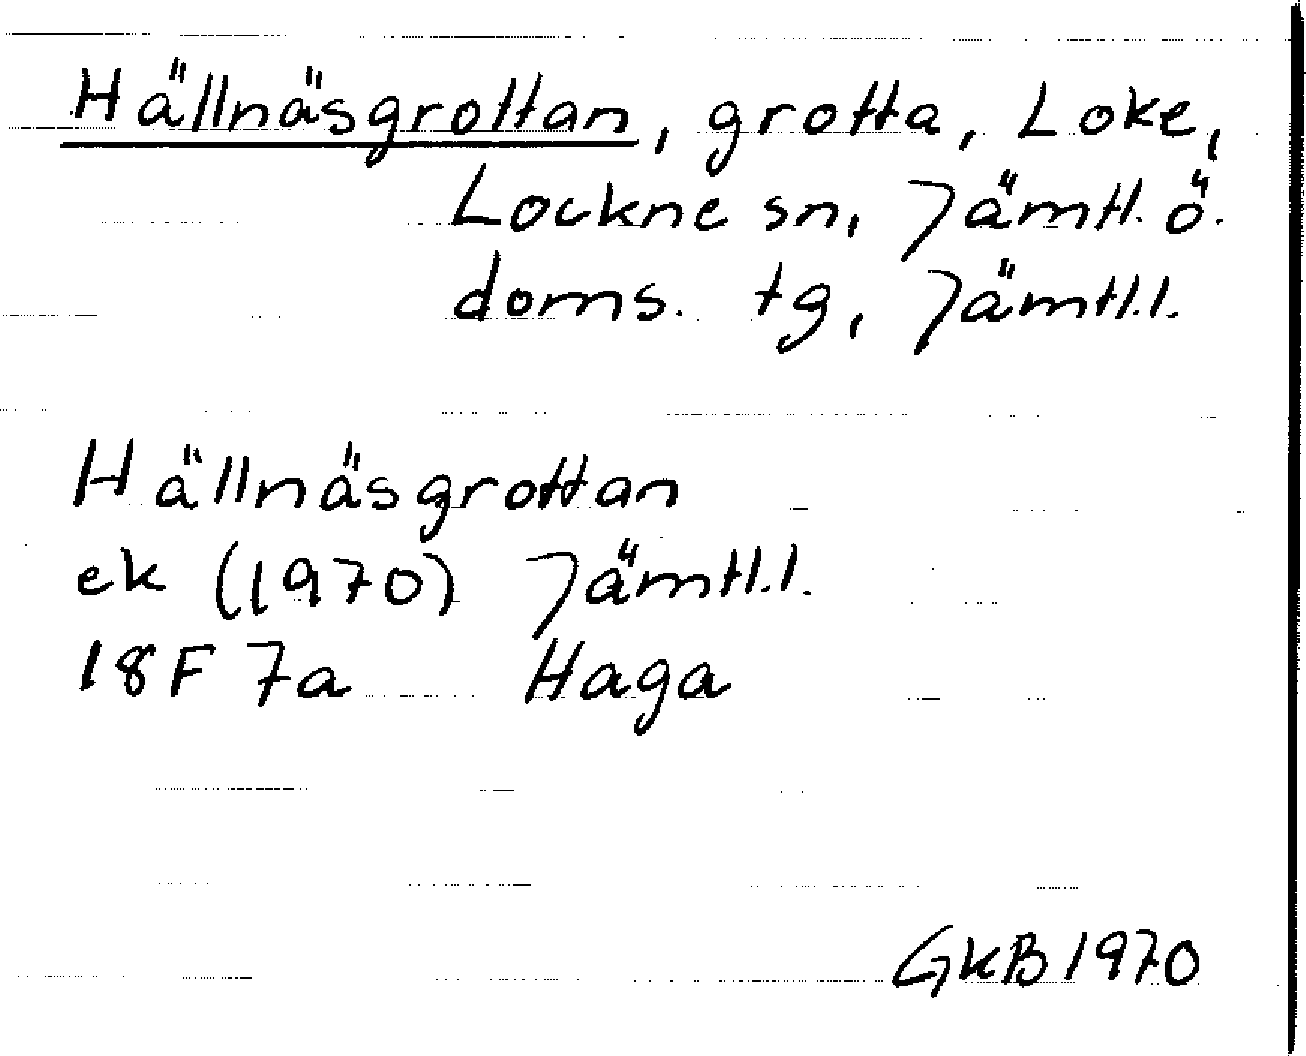 Hällnäsgrottan, grotta, Loke,
Lockne sn, Jämtl. ö.
doms. tg, Jämtl.l.
Hällnäsgrottan
ek (1970) Jämtl.l.
18F 7a Haga
GKB 1970